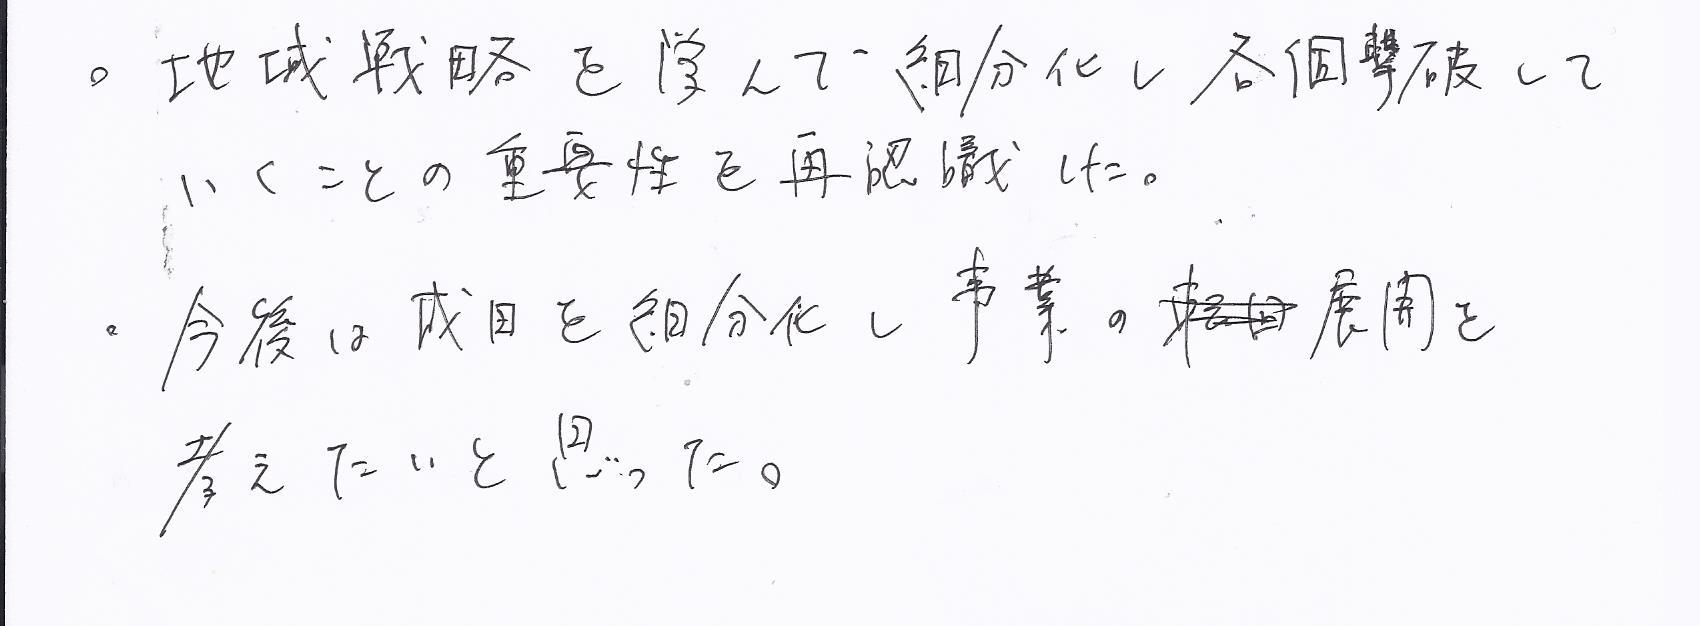 。地域戦略を学んで細分化し各個撃破して
いくことの重要性を再認識した。
。今後は成田を細分化し事業の展開を
考えたいと思った。